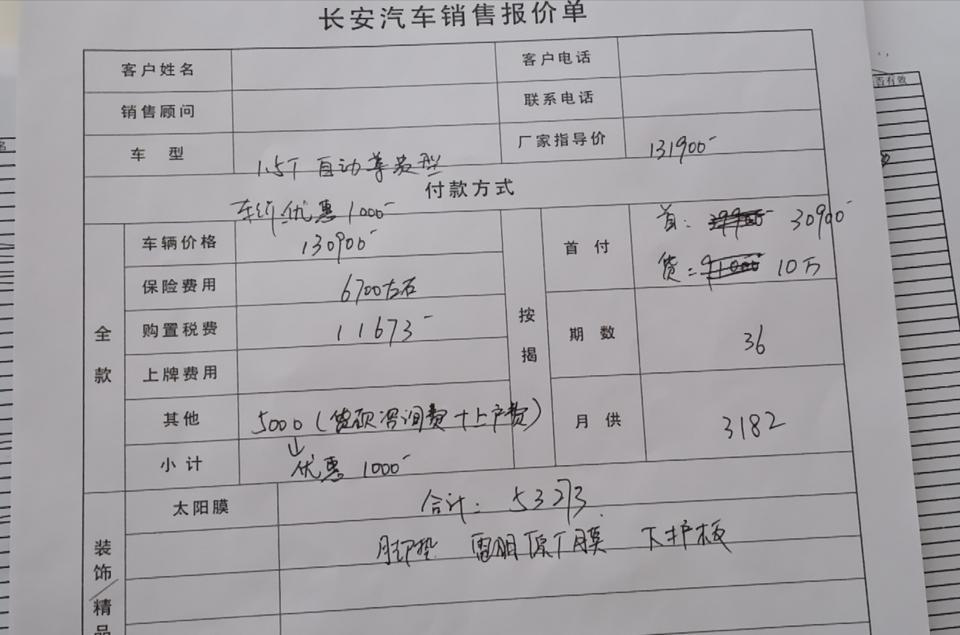 长安汽车销售报价单
客户姓名 客户电话
销售顾问 联系电话
车 型 1.5T 自动尊贵型 厂家指导价 131900-
付款方式
车价优惠1000-
全款
车辆价格 130900-
保险费用 6700左右
购置税费 11673-
上牌费用
其他 5000(贷款咨询费+上户费)
↓
小计 优惠 1000-
按揭
首 付 首: 30900-
贷= 10万
期 数 36
月 供 3182
装饰/精品
太阳膜 合计: 53273.
脚垫 雷朋原厂膜 下护板
否有效